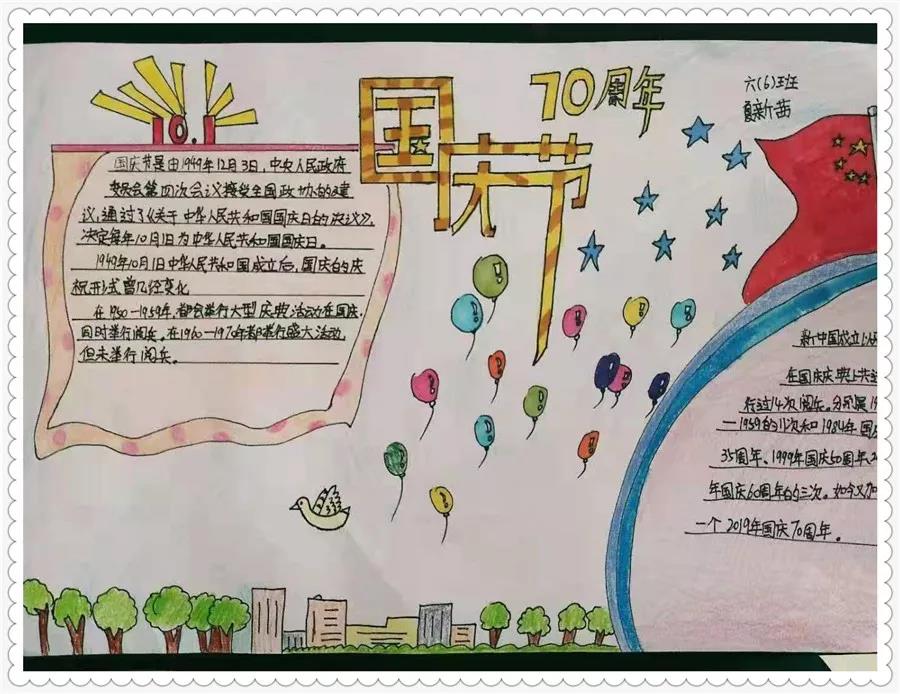 国庆节
70周年
六(6)班
夏新茜
10.1
国庆节是由1949年12月3日,中央人民政府
委员会第四次会议接受全国政协的建
议,通过了《关于中华人民共和国国庆日的决议》,
决定每年10月1日为中华人民共和国国庆日。
1949年10月1日中华人民共和国成立后,国庆的庆
祝形式曾几经变化
在1950—1959年,都会举行大型庆典活动在国庆,
同时举行阅兵。在1960—1970年都举行盛大活动,
但未举行阅兵。
新中国成立以
在国庆庆典上共
行过14次阅兵。分别是19
—1959的11次和1984年国庆
35周年、1999年国庆50周年、2
年国庆60周年的三次。如今又加
一个2019年国庆70周年。